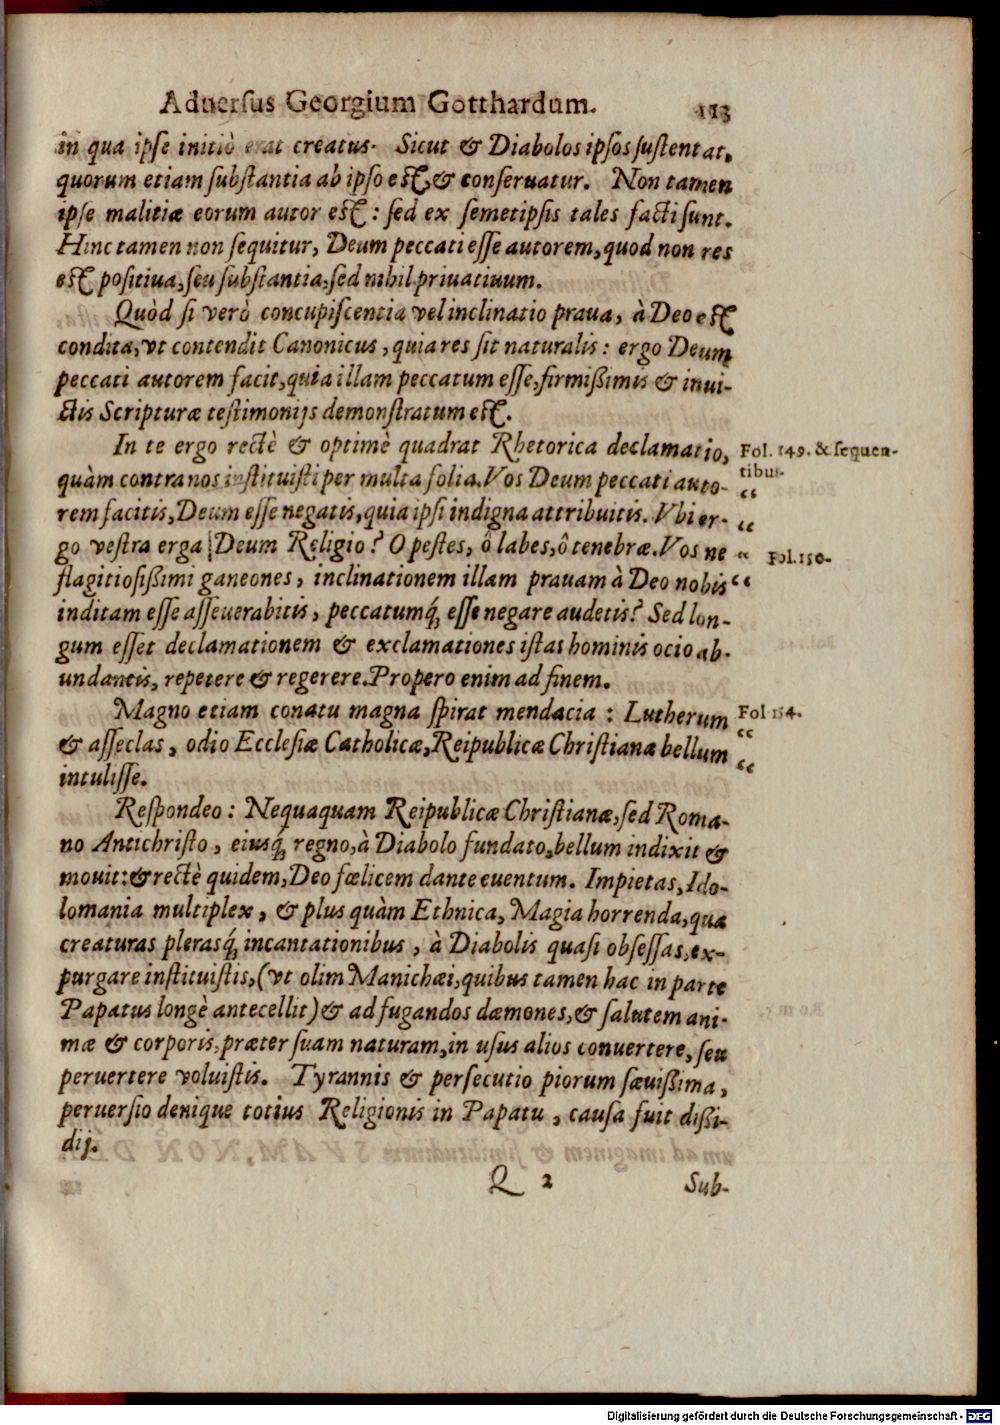 Aduersus Georgium Gotthardum. 113
in qua ipse initiò erat creatus. Sicut & Diabolos ipsos sustentat,
quorum etiam substantia ab ipso est, & conseruatur. Non tamen
ipse malitiæ eorum autor est: sed ex semetipsis tales facti sunt.
Hinc tamen non sequitur, Deum peccati esse autorem, quod non res
est positiua, seu substantia, sed nihil priuatiuum.
Quòd si verò concupiscentia vel inclinatio praua, à Deo est
condita, vt contendit Canonicus, quia res sit naturalis: ergo Deum
peccati autorem facit, quia illam peccatum esse, firmißimis & inui-
ctis Scripturæ testimonijs demonstratum est.
In te ergo rectè & optimè quadrat Rhetorica declamatio,
quàm contra nos instituisti per multa folia. Vos Deum peccati auto-
rem facitis, Deum esse negatis, quia ipsi indigna attribuitis. Vbi er-
go vestra erga Deum Religio? O pestes, ô labes, ô tenebræ. Vos ne
flagitiosißimi ganeones, inclinationem illam prauam à Deo nobis
inditam esse asseuerabitis, peccatumq́ esse negare audetis? Sed lon-
gum esset declamationem & exclamationes istas hominis ocio ab-
undantis, repetere & regerere. Propero enim ad finem.
Magno etiam conatu magna spirat mendacia: Lutherum
& asseclas, odio Ecclesiæ Catholicæ, Reipublicæ Christianæ bellum
intulisse.
Respondeo: Nequaquam Reipublicæ Christianæ, sed Roma-
no Antichristo, eiusq́ regno, à Diabolo fundato, bellum indixit &
mouit: & rectè quidem, Deo fœlicem dante euentum. Impietas, Ido-
lomania multiplex, & plus quàm Ethnica, Magia horrenda, qua
creaturas plerasq́ incantationibus, à Diabolis quasi obsessas, ex-
purgare instituistis, (vt olim Manichæi, quibus tamen hac in parte
Papatus longè antecellit) & ad fugandos dæmones, & salutem ani-
mæ & corporis, præter suam naturam, in usus alios conuertere, seu
peruertere voluistis. Tyrannis & persecutio piorum sæuißima,
peruersio denique totius Religionis in Papatu, causa fuit dißi-
dij.
Q 2 Sub-
Fol. 149. & sequen-
tibus.
“
“
“ Fol. 150.
“
Fol 154.
“
“
Digitalisierung gefördert durch die Deutsche Forschungsgemeinschaft - DFG